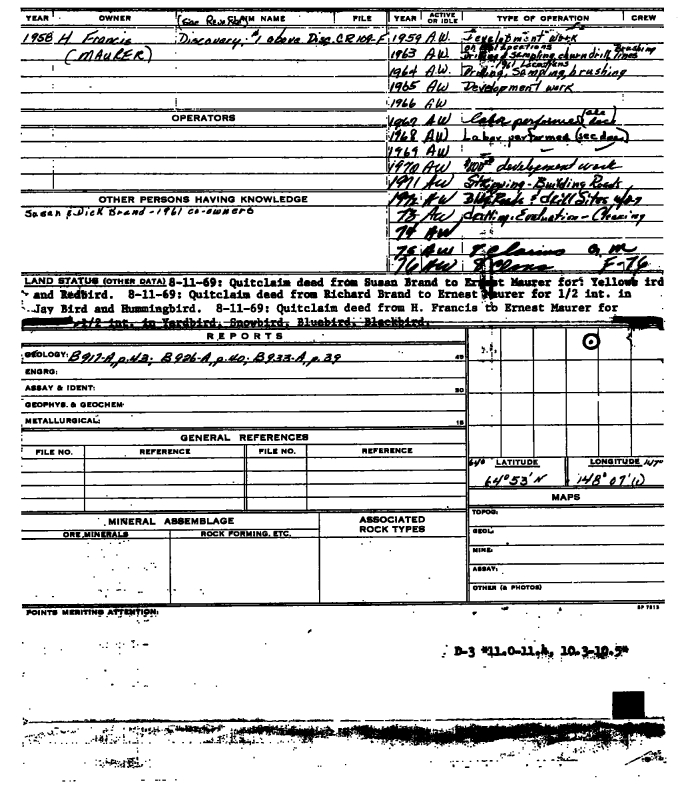 YEAR OWNER (See Rev. Side) M NAME FILE YEAR ACTIVE OR IDLE TYPE OF OPERATION CREW
1958 H. Francis Discovery, #1 above Disc. CR 109-F 1959 A.W. Development work
(MAURER) 1963 A.W. Drilling & Sampling, churn drill, Brushing lines
on 1961 Locations
1961 Locations
1964 A.W. Drilling, Sampling, brushing
1965 AW Development work
1966 AW
OPERATORS
1967 AW Labor performed
1968 AW Labor performed (see docs)
1969 AW
1970 AW development work
1971 AW Stripping - Building Roads
OTHER PERSONS HAVING KNOWLEDGE
1972 AW Bldg Roads & drill Sites
Susan & Dick Brand - 1961 co-owners
73 AW drilling. Evaluation - Clearing
74 AW
75 AW 9 Claims
76 AW 8 Claims F-76
LAND STATUS (OTHER DATA) 8-11-69: Quitclaim deed from Susan Brand to Ernest Maurer for: Yellow ird
and Redbird. 8-11-69: Quitclaim deed from Richard Brand to Ernest Maurer for 1/2 int. in
Jay Bird and Hummingbird. 8-11-69: Quitclaim deed from H. Francis to Ernest Maurer for
1/2 int. in Yardbird, Snowbird, Bluebird, Blackbird.
REPORTS
GEOLOGY: B917-A, p.43; B926-A, p.40; B933-A, p.39
ENGRG:
ASSAY & IDENT:
GEOPHYS. & GEOCHEM:
METALLURGICAL:
GENERAL REFERENCES
FILE NO. REFERENCE FILE NO. REFERENCE
LATITUDE LONGITUDE 147°
64° 53' N 148° 07' W
MAPS
MINERAL ASSEMBLAGE ASSOCIATED ROCK TYPES
ORE MINERALS ROCK FORMING, ETC.
TOPOG:
GEOL:
MINE:
ASSAY:
OTHER (& PHOTOS)
POINTS MERITING ATTENTION:
D-3 "11.0-11.4, 10.3-10.5"